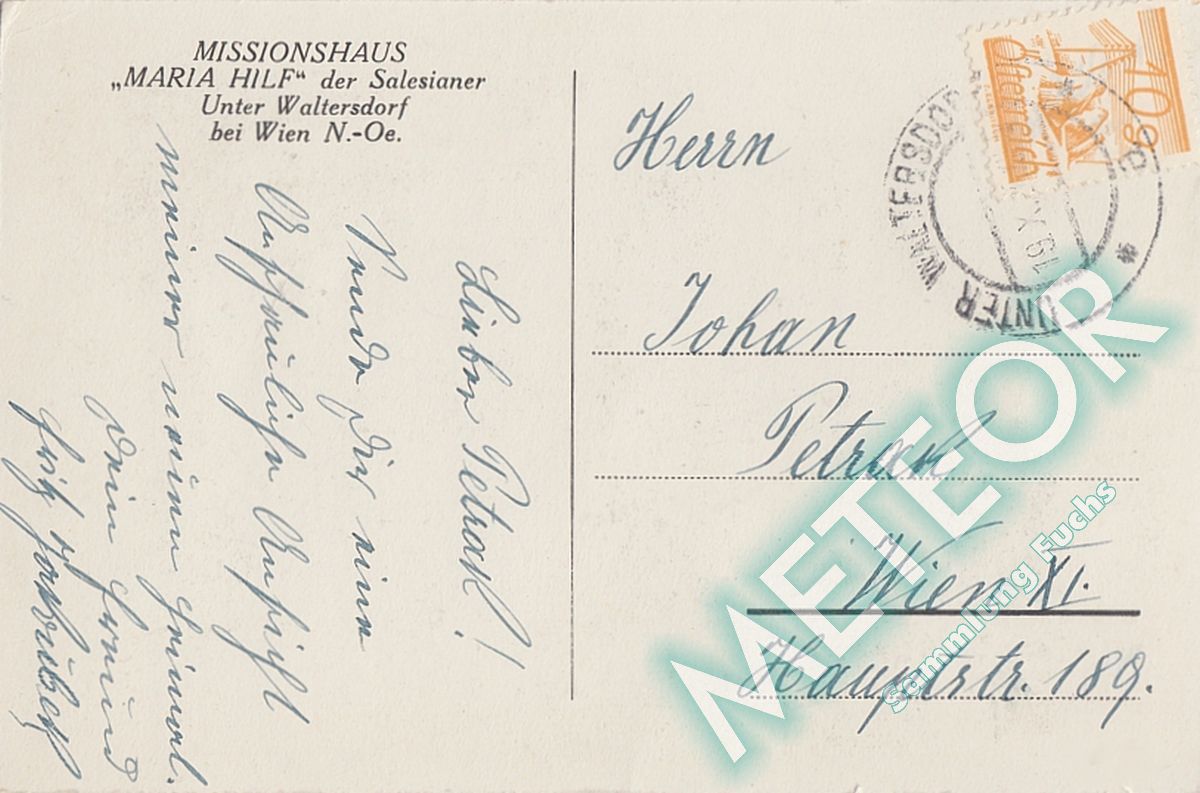 MISSIONSHAUS
„MARIA HILF“ der Salesianer
Unter Waltersdorf
bei Wien N.-Oe.
Lieber Petrak!
Sende Dir eine
Ansicht
meiner neuen Heimat.
Dein Freund
Herrn
Johan
Petrak
Wien XI.
Hauptstr. 189.
10 g
Österreich
UNTER WALTERSDORF
METEOR
Sammlung Fuchs